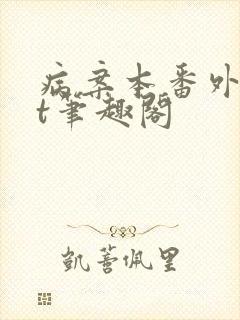 病案本番外
t笔趣阁
凯蓍佩里